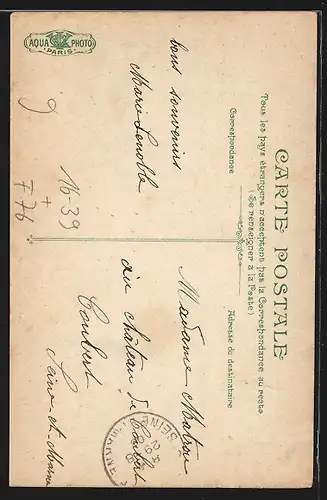 CARTE POSTALE
Tous les pays étrangers n'acceptent pas la Correspondance au recto
(Se renseigner à la Poste)
Correspondance
Adresse du destinataire
bons souvenirs
Marie Lenoble
Madame
au château de Coubert
Coubert
Seine-et-Marne
AQUA PHOTO
PARIS
16-39
+
F76
9
SEINE